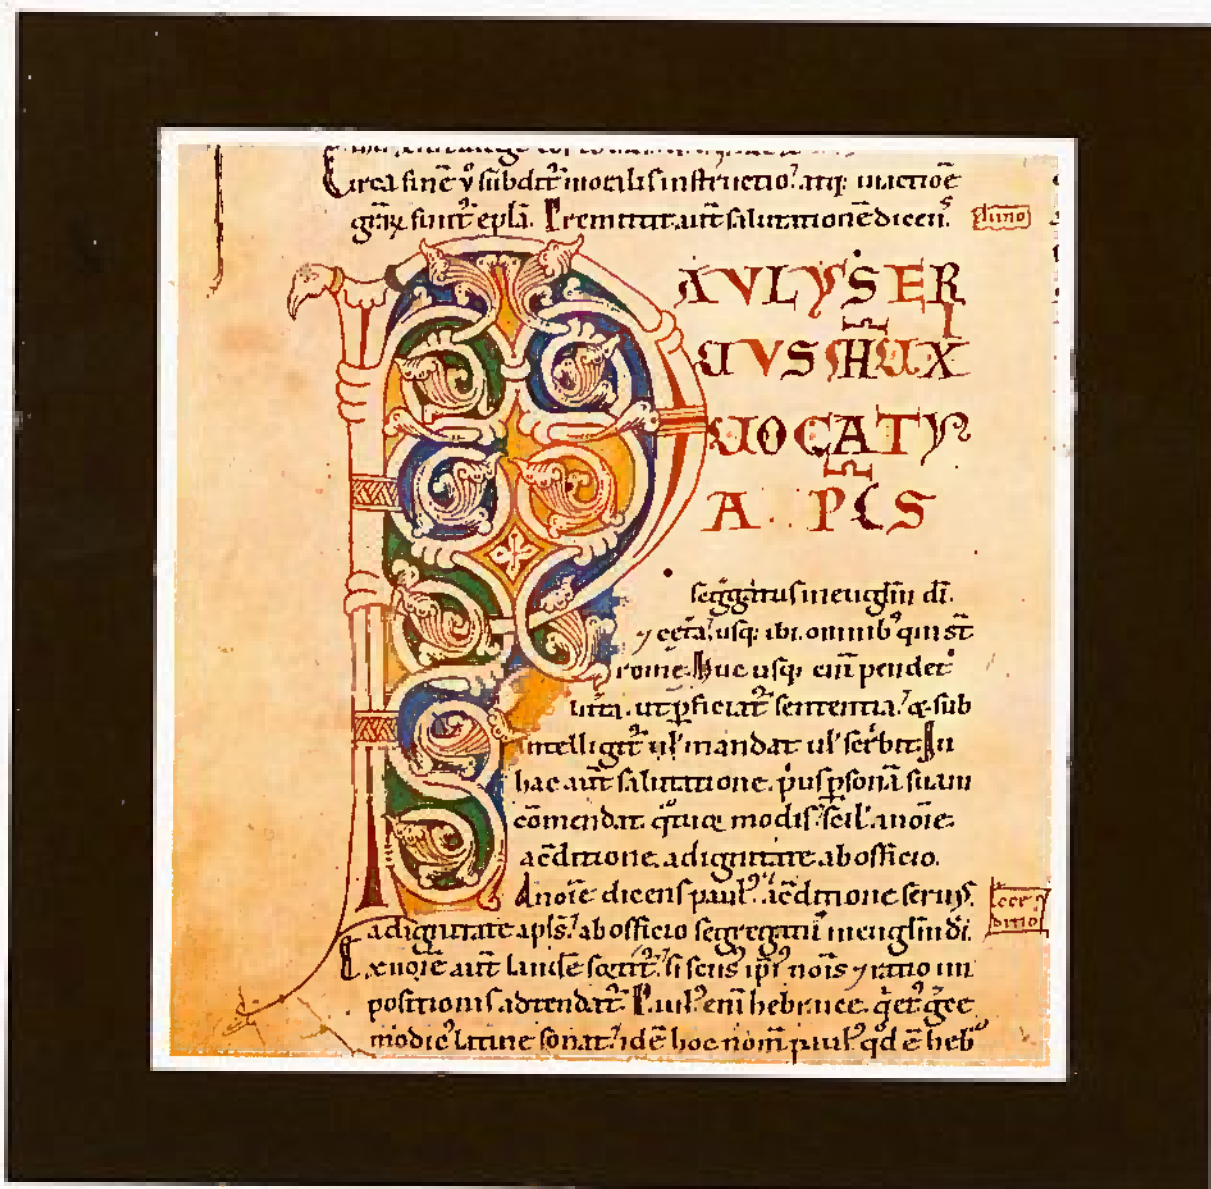 Circa finē ū subditꝰ moralis instructioꝰ. atiꝫ inactiōe
grāꝝ finitꝰ epl̄a. Premittit aūt salutationē dicenˢ.
AVLVS SER
VVS IH̄V XPI
VOCATVS
APL̄S
segͣgatus in eugl̄m dī.
⁊ ceta usqꝫ ibi. omnibꝰ qui st̄
rome. Huc usqꝫ enī pendet
ut ꝑficiatꝰ sententia. sub
intelligitꝰ ul mandat ul scͥbit. In
hac aūt salutatione. pͥus ꝑsonā suam
cōmendat. modis. scil. a noīe.
a cōditione. a dignitate. ab officio.
A noīe dicens paulꝰ. a cōditione seruꝰ.
a dignitate apl̄s. ab officio segregatū in eugl̄m dī.
Ex noīe aūt ⁊ ratio im
positionis adtendatꝰ. Paulꝰ enī hebraice.
modicꝰ latine sonat. id ē hoc nom̄ paulꝰ qd ē heb